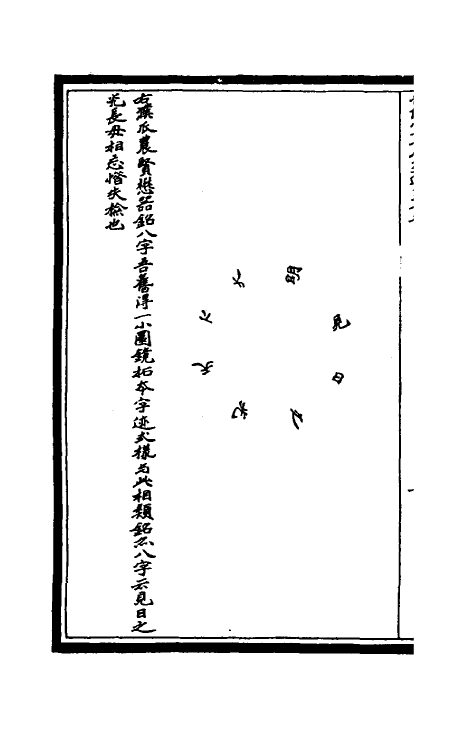 見日之光天下大明
右漢瓜農賢懋器銘八字吾舊得一小圓鏡拓本字迹式樣与此相類銘亦八字云見日之
光長毋相忘惜失檢也